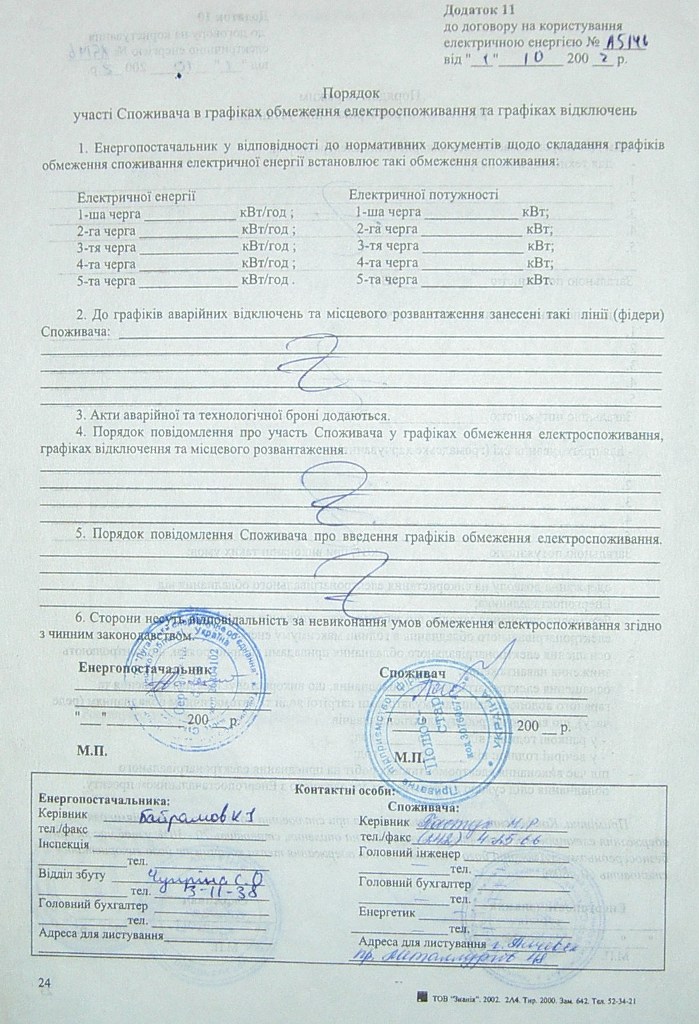 Додаток 11
до договору на користування
електричною енергією № А5146
від "1" 10 200 2 р.
Порядок
участі Споживача в графіках обмеження електроспоживання та графіках відключень
1. Енергопостачальник у відповідності до нормативних документів щодо складання графіків
обмеження споживання електричної енергії встановлює такі обмеження споживання:
Електричної енергії Електричної потужності
1-ша черга ____________ кВт/год ; 1-ша черга ____________ кВт;
2-га черга ____________ кВт/год ; 2-га черга ____________ кВт;
3-тя черга ____________ кВт/год ; 3-тя черга ____________ кВт;
4-та черга ____________ кВт/год ; 4-та черга ____________ кВт;
5-та черга ____________ кВт/год . 5-та черга ____________ кВт.
2. До графіків аварійних відключень та місцевого розвантаження занесені такі лінії (фідери)
Споживача:
3. Акти аварійної та технологічної броні додаються.
4. Порядок повідомлення про участь Споживача у графіках обмеження електроспоживання,
графіках відключення та місцевого розвантаження.
5. Порядок повідомлення Споживача про введення графіків обмеження електроспоживання.
6. Сторони несуть відповідальність за невиконання умов обмеження електроспоживання згідно
з чинним законодавством.
Енергопостачальник Споживач
"___"__________ 200 __ р. "___"__________ 200 __ р.
М.П. М.П.
Контактні особи:
Енергопостачальника: Споживача:
Керівник Байрамов К І Керівник Пастух Н.Р
тел./факс тел./факс (242) 4 25 66
Інспекція Головний інженер
тел. тел.
Відділ збуту Чуприна С.О Головний бухгалтер
тел. 3-11-38 тел.
Головний бухгалтер Енергетик
тел. тел.
Адреса для листування Адреса для листування г.
пр. Металлургов
24
ТОВ "Знанія". 2002. 2Л4. Тир. 2000. Зам. 642. Тел. 52-34-21